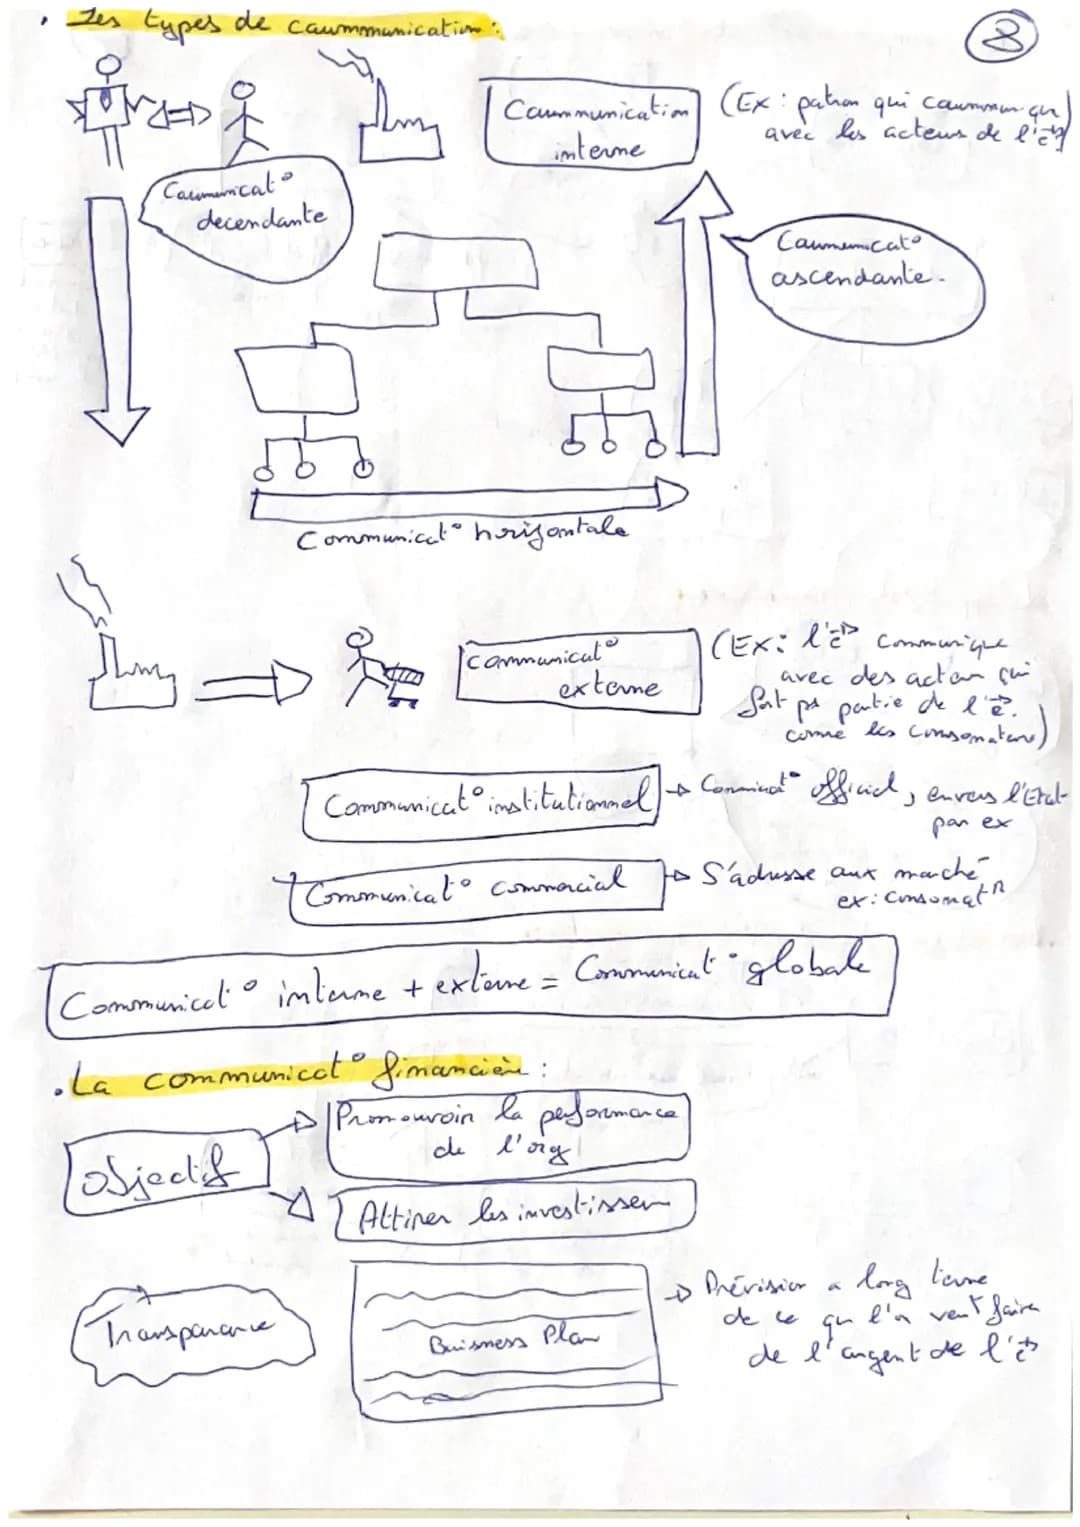 . Les types de caummunication :
8
Caummunication
interne
(Ex : patron qui caummunique
avec les acteurs de l'ē)
Caummunicat°
decendante
Caumunicat°
ascendante.
Communicat° horizontale
Communicat°
externe
(Ex : l'ē communique
avec des acteur qui
font ps partie de l'ē.
comme les consomateurs)
Communicat° institutionnel
→ Communicat° officiel, envers l'Etat
par ex
Communicat° commercial
→ S'adresse aux marché
ex : consomatR
Communicat° interne + externe = Communicat° globale
. La communicat° financière :
Objectif
Promouvoir la performance
de l'org
Attirer les investisseur
Transparance
Buisness Plan
→ Prévision a long terme
de ce qu l'on veut faire
de l'argent de l'ē